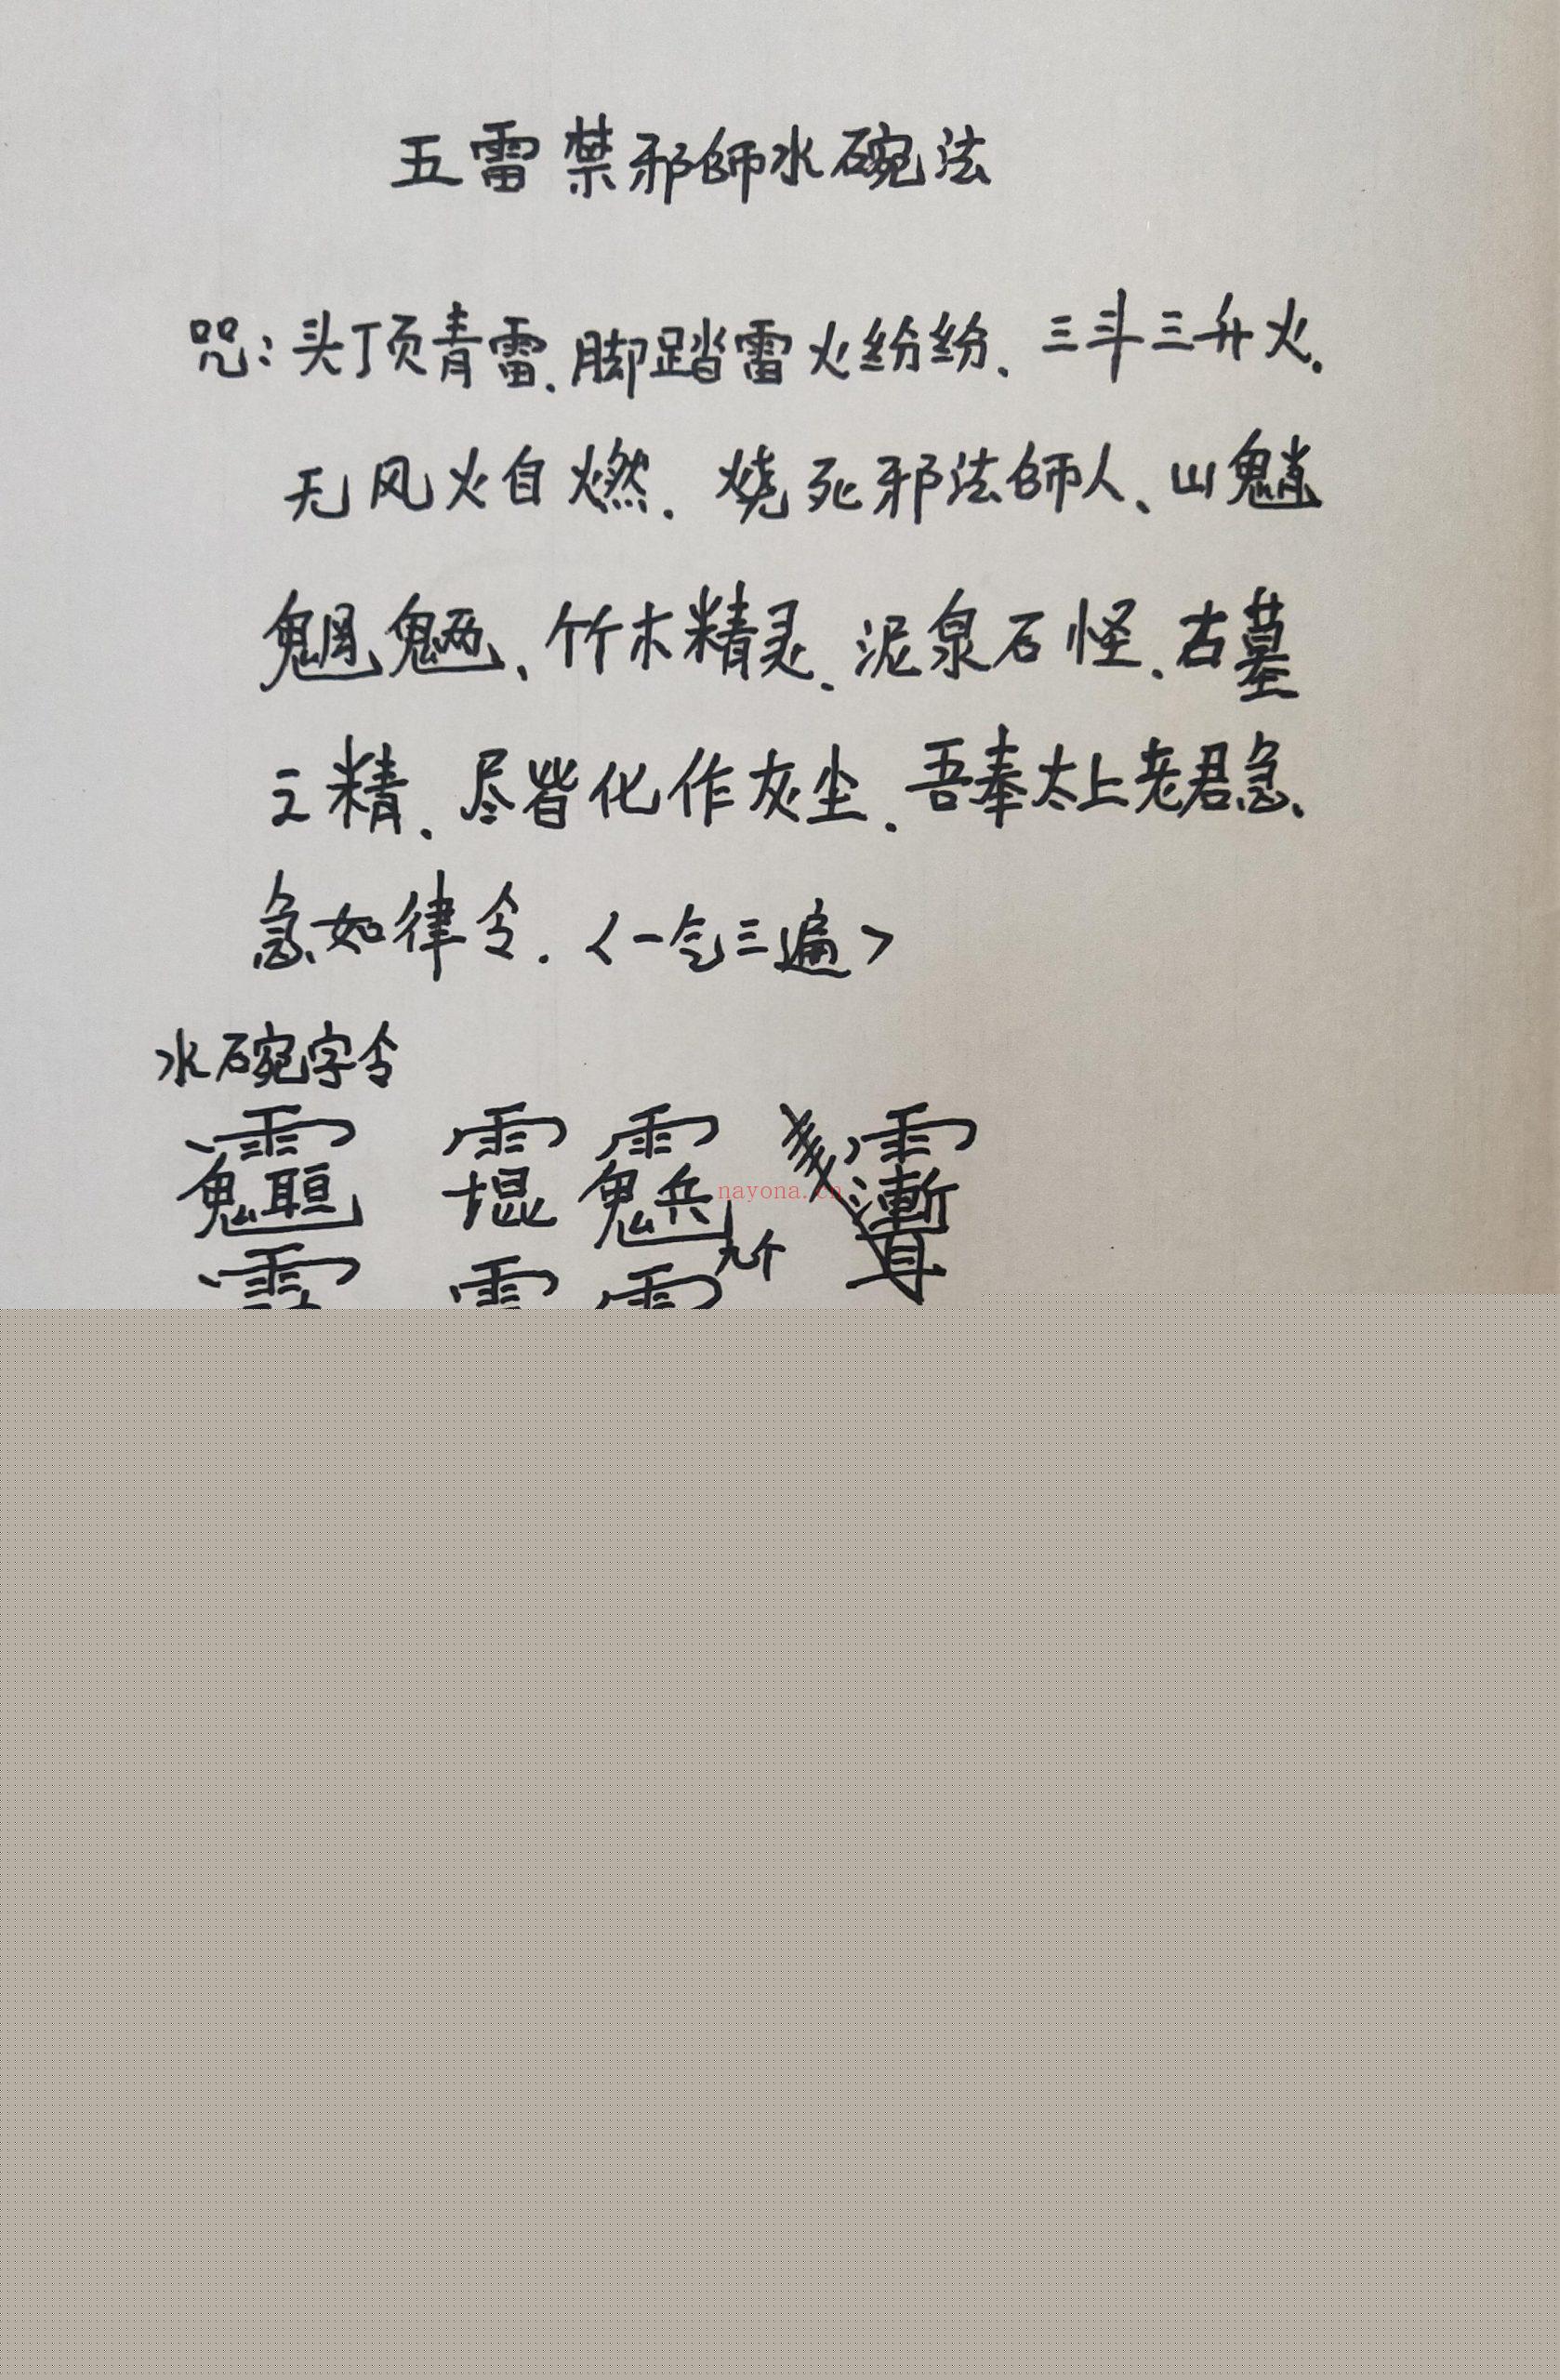 五雷禁邪師水碗法
咒：头顶青雷．脚踏雷火纷纷．三斗三升火．
无风火自燃．烧死邪法師人、山魈
魍魉、竹木精灵．泥泉石怪．古墓
之精．尽皆化作灰尘．吾奉太上老君急
急如律令．<一气三遍>
水碗字令
九个
nayona.cn